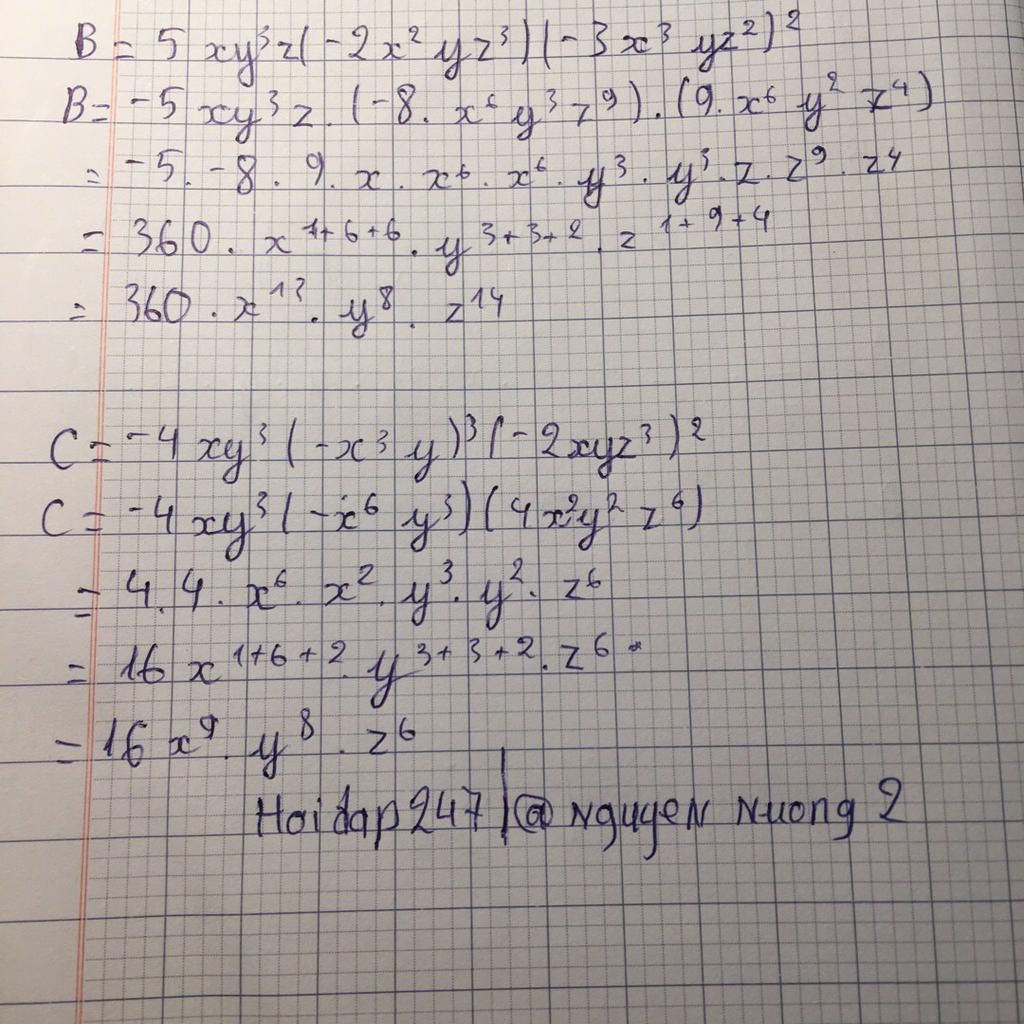 B = 5 xy³z(-2x² yz³)(-3x³ yz²)²
B = -5 xy³z . (-8. x⁶ y³ z⁹) . (9. x⁶ y² z⁴)
= -5. -8 . 9 . x . x⁶ . x⁶ . y³ . y³ . z . z⁹ . z⁴
= 360 . x¹⁺⁶⁺⁶ . y³⁺³⁺² . z¹⁺⁹⁺⁴
= 360 . x¹³ . y⁸ . z¹⁴
C = -4 xy³ (-x³ y)³ (-2xyz³)²
C = -4 xy³ (-x⁶ y³) (4x²y² z⁶)
= 4.4. x⁶ . x² . y³ . y² . z⁶
= 16 x¹⁺⁶⁺² . y³⁺³⁺² . z⁶ .
= 16 x⁹ . y⁸ . z⁶
Hoidap247 |@ Nguyen Nuong 2